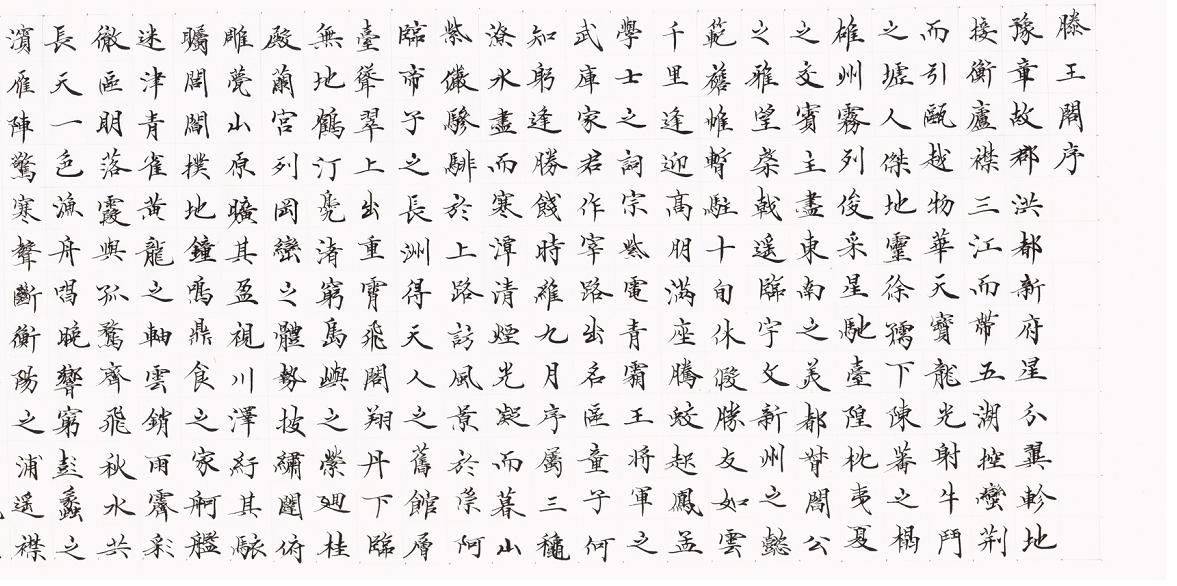 滕王閣序
豫章故郡洪都新府星分翼軫地
接衡廬襟三江而帶五湖控蠻荊
而引甌越物華天寶龍光射牛鬥
之墟人傑地靈徐孺下陳蕃之榻
雄州霧列俊采星馳臺隍枕夷夏
之交賓主盡東南之美都督閻公
之雅望棨戟遥臨宇文新州之懿
範襜帷暫駐十旬休假勝友如雲
千里逢迎高朋滿座騰蛟起鳳孟
學士之詞宗紫電青霜王將軍之
武庫家君作宰路出名區童子何
知躬逢勝餞時維九月序屬三穐
潦水盡而寒潭清煙光凝而暮山
紫儼驂騑於上路訪風景於崇阿
臨帝子之長洲得天人之舊館層
臺聳翠上出重霄飛閣翔丹下臨
無地鶴汀鳧渚窮島嶼之縈迴桂
殿蘭宮列岡巒之體勢披繡闥俯
雕甍山原曠其盈視川澤紆其駭
矚閭閻撲地鐘鳴鼎食之家舸艦
迷津青雀黃龍之軸雲銷雨霽彩
徹區明落霞與孤鶩齊飛秋水共
長天一色漁舟唱晚響窮彭蠡之
濱雁陣驚寒聲斷衡陽之浦遥襟